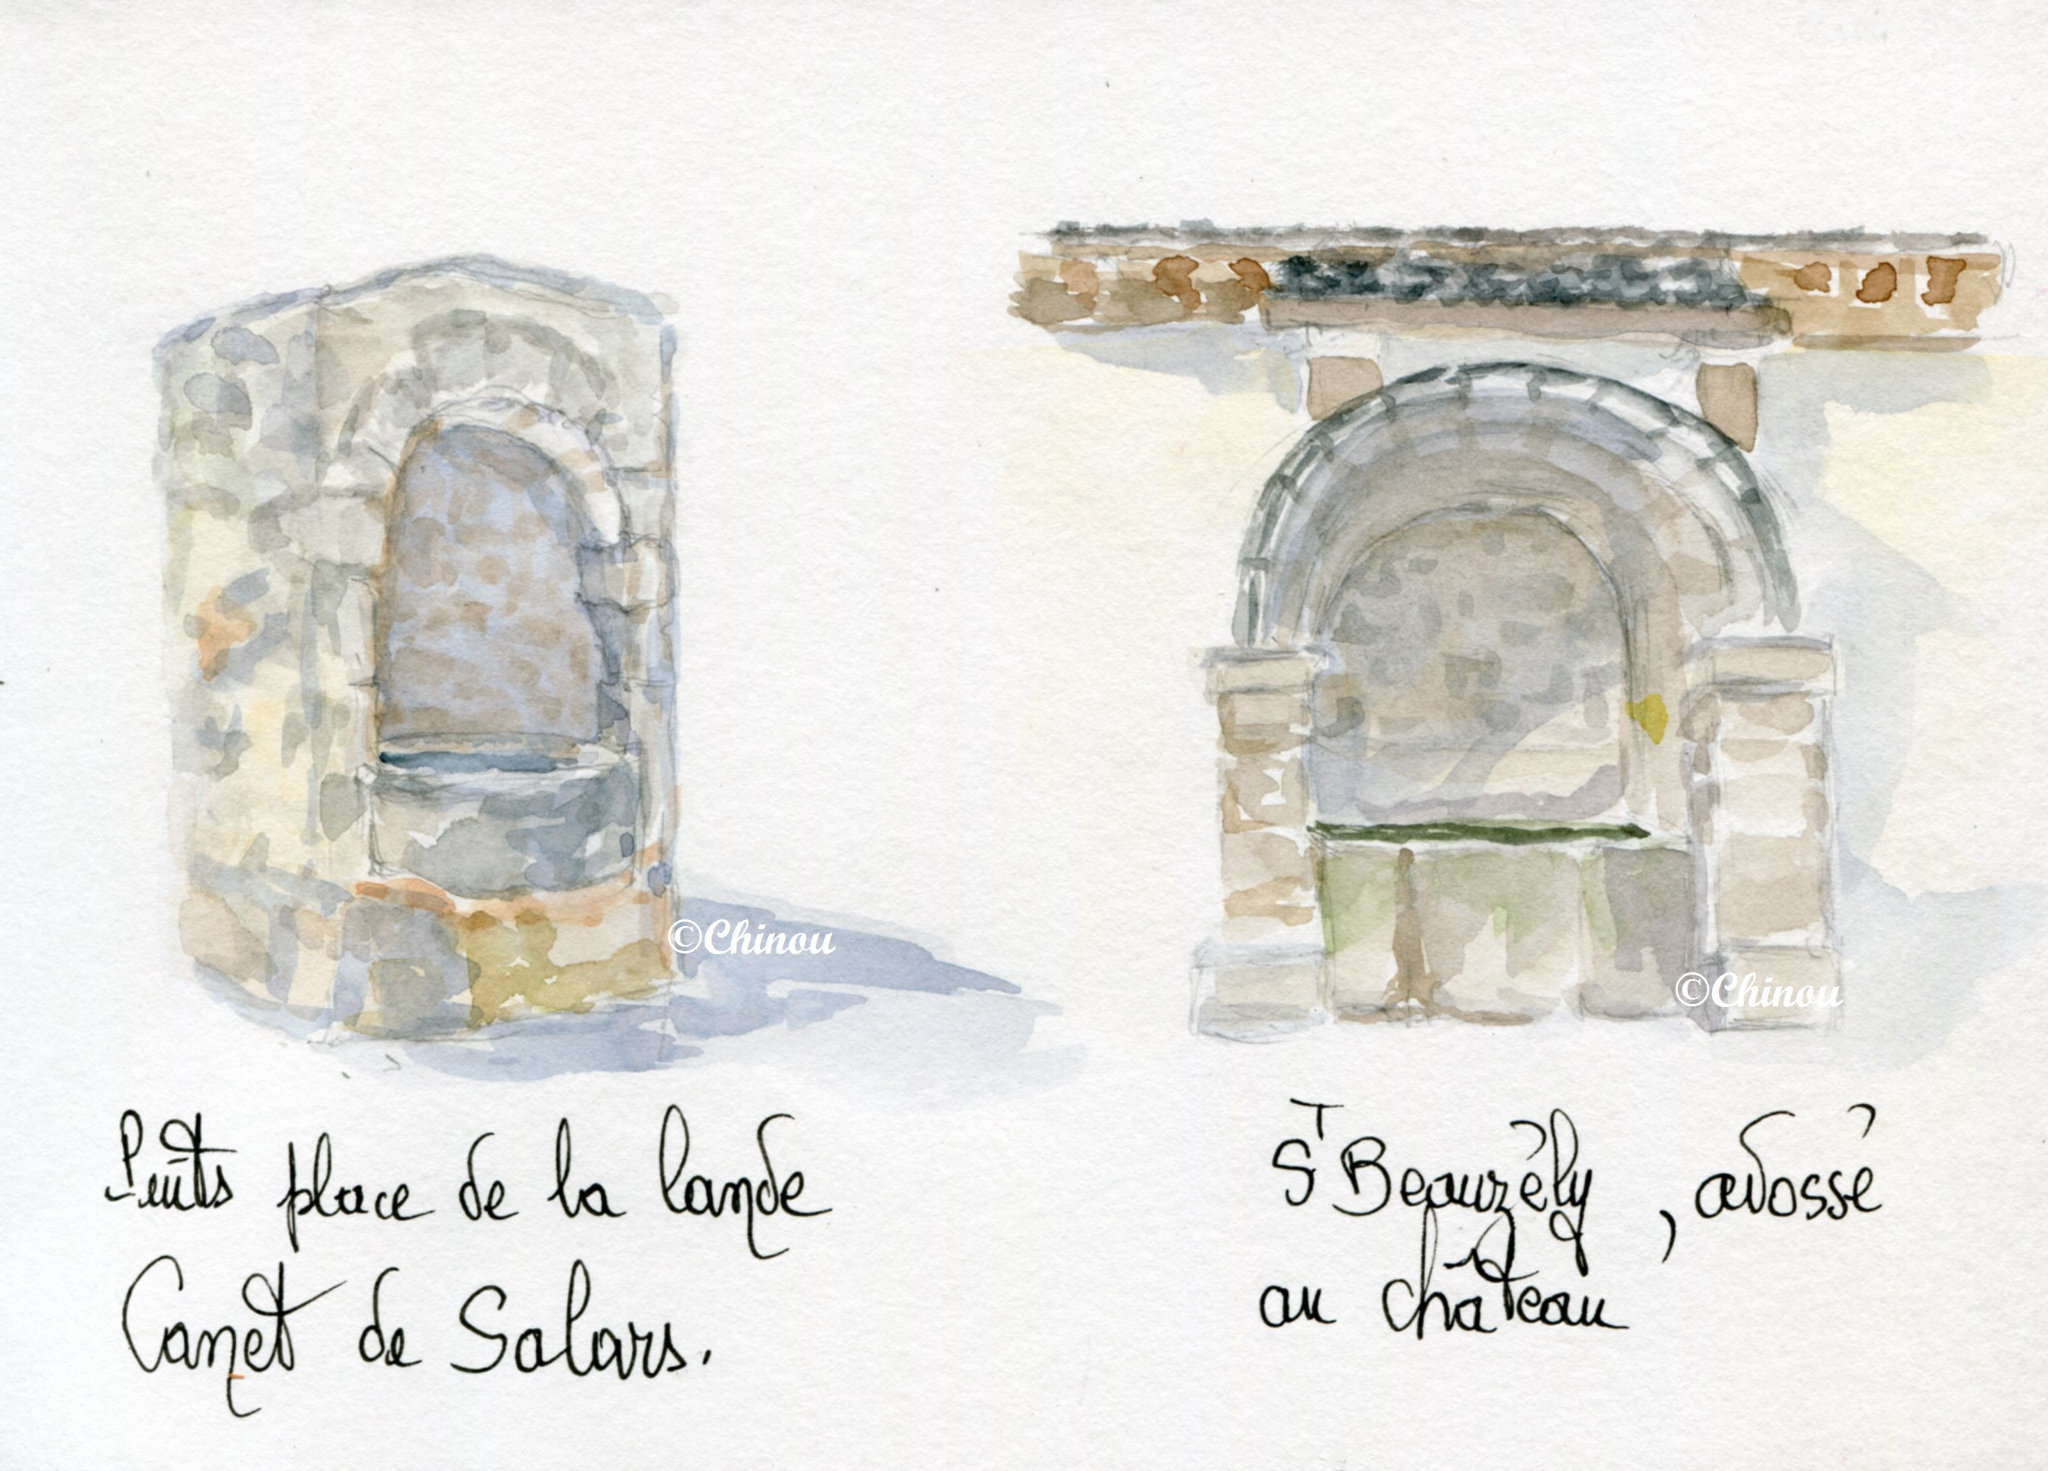 ©Chinou
©Chinou
Puits place de la lande
Canet de Salars.
St Beauzély, adossé
au château